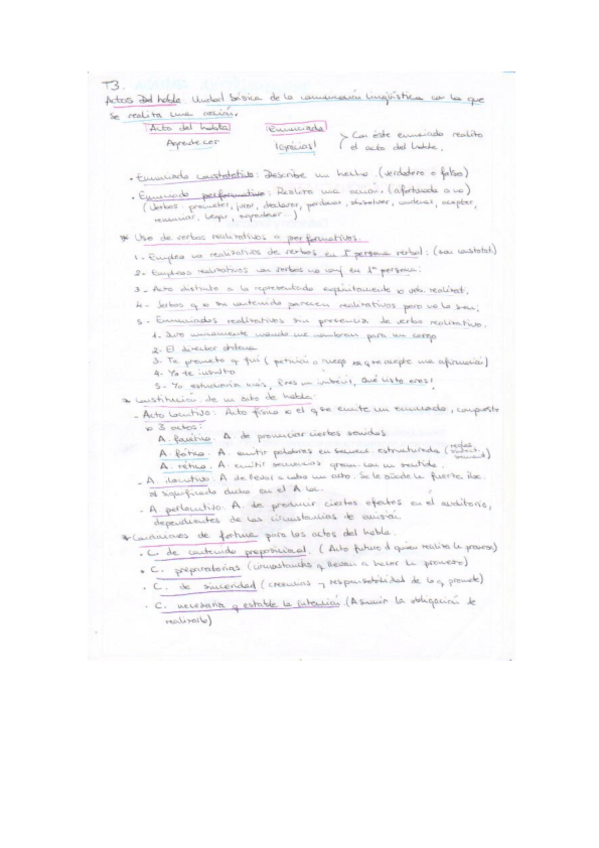 T3.
Actos del habla. Unidad básica de la comunicación lingüística con la que
se realiza una acción.
Acto del habla Enunciado
Agradecer ¡Gracias! > Con éste enunciado realizo
el acto del habla.
• Enunciado constatativo: Describe un hecho. (verdadero o falso)
• Enunciado performativo: Realiza una acción. (afortunada o no)
(Verbos: prometer, jurar, declarar, perdonar, absolver, condenar, aceptar,
renunciar, legar, agradecer...)
* Uso de verbos realizativos o performativos.
1- Emplea no realizativos de verbos en 1ª persona verbal: (son constatat.)
2- Empleos realizativos con verbos no conj. en 1ª persona:
3- Acto distinto a lo representado explícitamente x vob. realizat.
4- Verbos q x su contenido parecen realizativos pero no lo son:
5- Enunciados realizativos sin presencia de verbo realizativo.
1- Juro nuevamente cuando me nombran para un cargo
2- El director ordena
3- Te prometo q fui ( petición o ruego xa q se acepte una afirmación)
4- Yo te insulto
5- Yo estudiaría más, Eres un imbécil, Qué listo eres!
* Constitución de un acto de habla.
- Acto Locutivo: Acto físico x el q se emite un enunciado, compuesto
x 3 actos:
A. fonético. A. de pronunciar ciertos sonidos
A. fático. A. emitir palabras en secuenc. estructurada (reglas
A. rético. A. emitir secuencias gram. con un sentido.
- A. ilocutivo. A de llevar a cabo un acto. Se le añade la fuerza iloc.
al significado dicho en el A loc.
- A perlocutivo. A. de producir ciertos efectos en el auditorio,
dependientes de las circunstancias de emisión.
* Condiciones de fortuna para los actos del habla.
• C. de contenido preposicional. ( Acto futuro d quien realiza la promesa)
• C. preparatorias (circunstancias q llevan a hacer la promesa)
• C. de sinceridad ( creencias y responsabilidad de lo q promete)
• C. necesaria q estable la intención. (Asumir la obligación de
realizarlo)